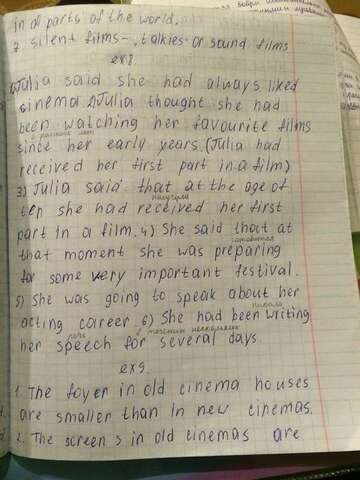 in all parts of the world.
7 silent films - , talkies or sound films
ex8.
1) Julia said she had always liked
cinema 2) Julia thought she had
been watching her favourite films
с ранних лет
since her early years. (Julia had
received her first part in a film)
3) Julia said that at the age of
получила
ten she had received her first
part in a film. 4) She said that at
готовится
that moment she was preparing
for some very important festival.
5) She was going to speak about her
писала
acting career 6) She had been writing
речь в течении нескольких
her speech for several days.
ex9.
1. The foyer in old cinema houses
are smaller than in new cinemas.
2. The screen s in old cinemas are